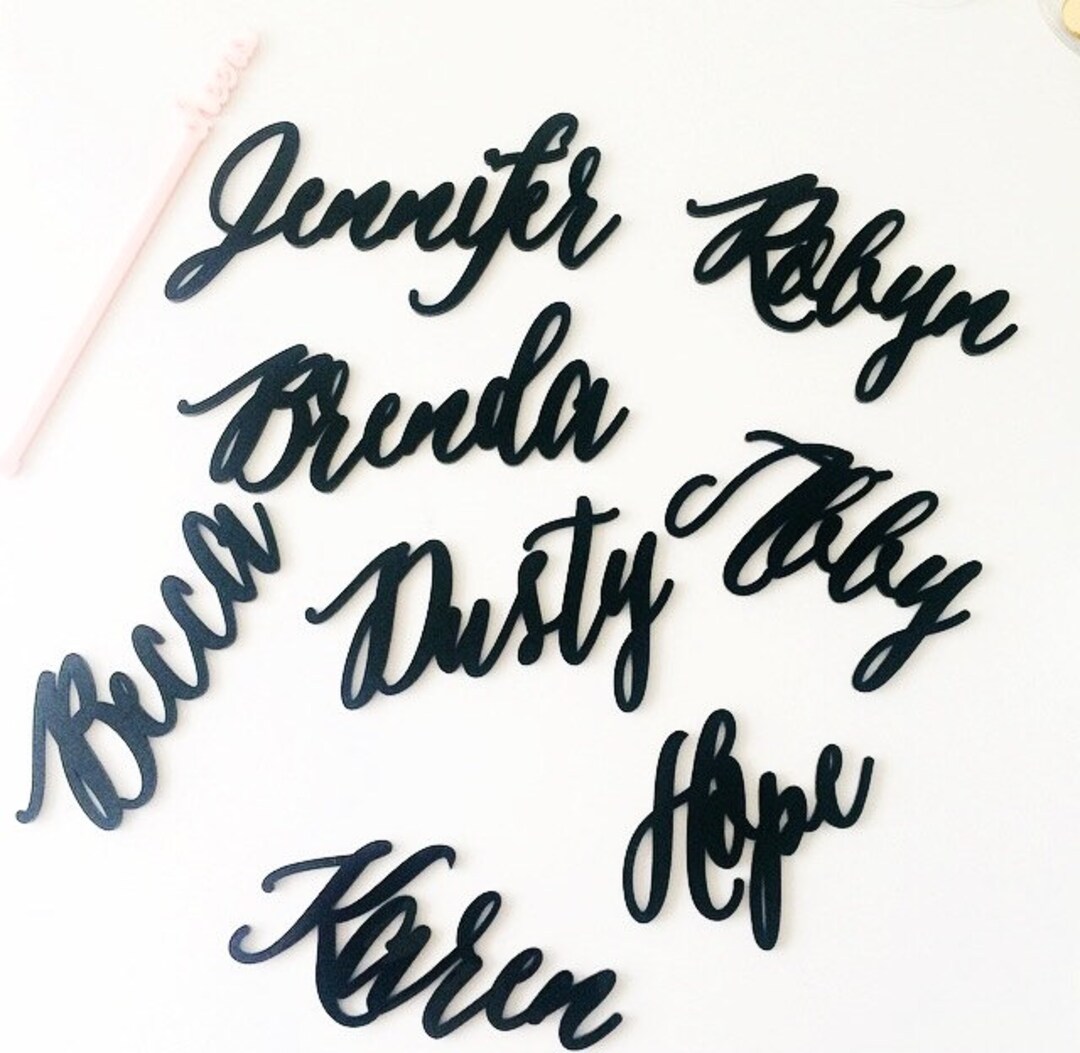 cheers
Jennifer
Robyn
Brenda
Abby
Becca
Dusty
Hope
Karen